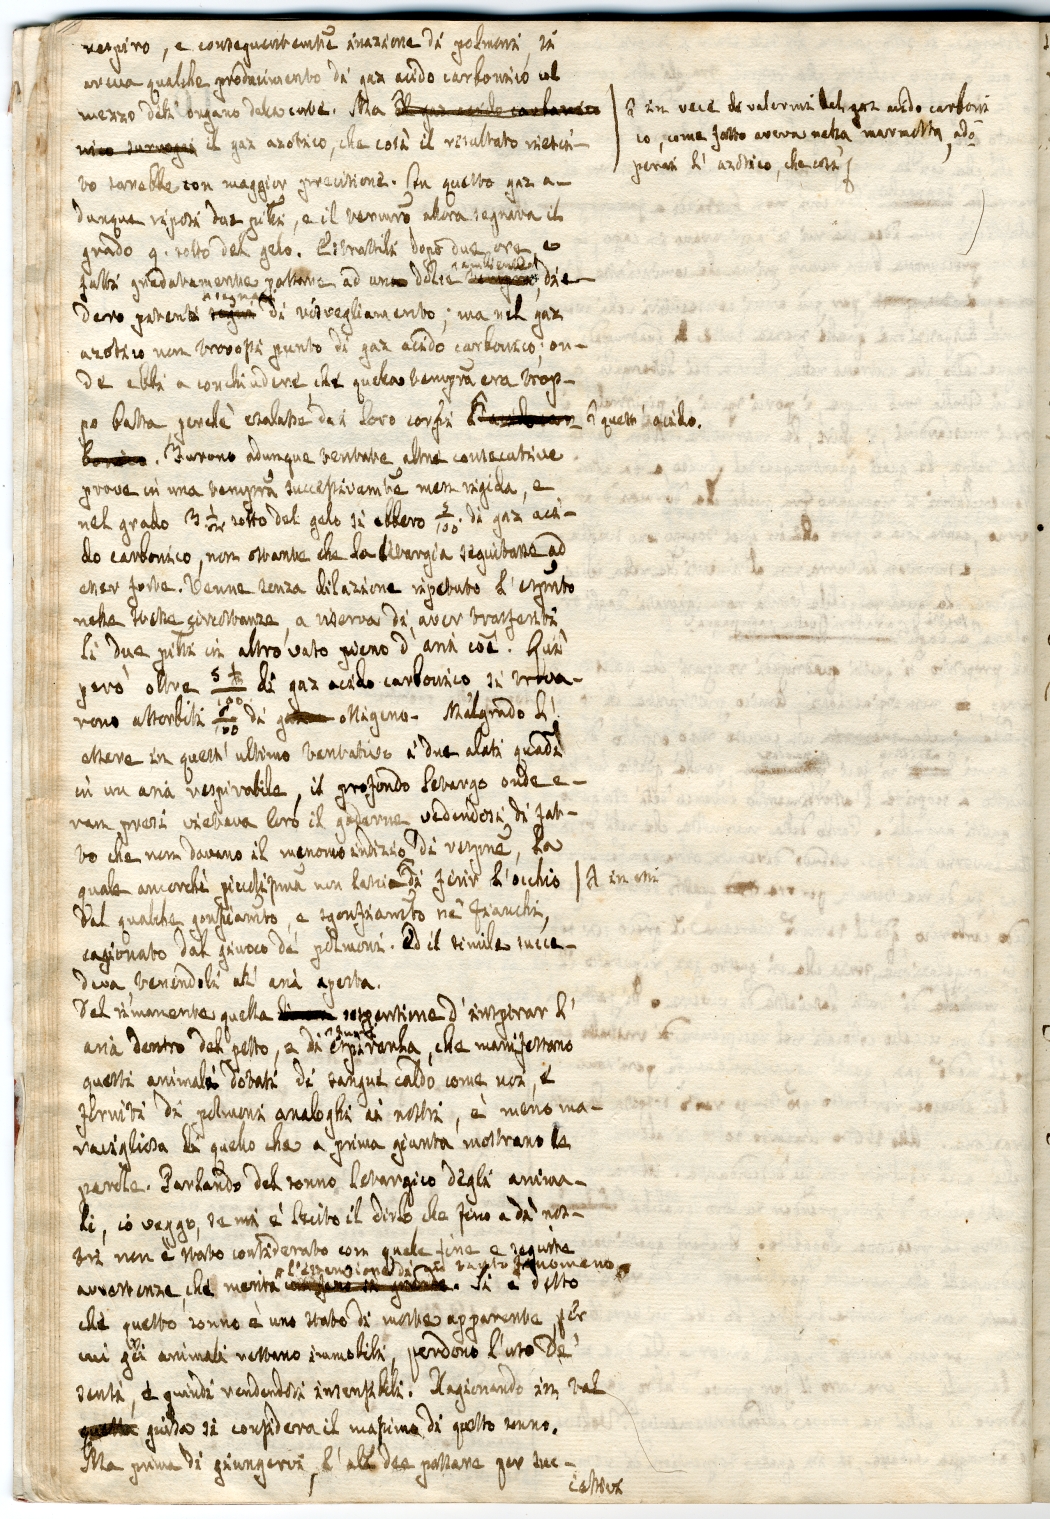 respiro, e conseguentemte inazione di polmoni, si
aveva qualche producimento di gaz acido carbonico col
mezzo dell' organo della cute. Ma Il gaz acido carbonico
il gaz azotico, che così il risultato riesci-
to sarebbe con maggior precisione. In questo gaz a-
dunque riposi due pipi, e il termro allora segnava il
grado 9. sotto del gelo. Estrattili dopo due ore, e
fatti gradatamente passare ad una dolce ambiente tempra, die-
dero patenti segnali segni di risvegliamento; ma nel gaz
azotico non trovossi punto di gaz acido carbonico; on-
de ebbi a conchiudere che quella tempra era trop-
po bassa perchè esalasse dai loro corpi
. Furono adunque tentate altre consecutive
prove in una tempra successivamte men rigida, e
nel grado 3 1/2 sotto del gelo si ebbero 5/100 di gaz aci-
do carbonico, non ostante che la letargia seguitasse ad
esser forte. Venne senza dilazione ripetuto l' esprito
nelle stesse circostanze, a riserva di aver trasferiti
li due pipi in altro vaso pieno d' aria coe. Quì
però oltre 5 1/2/100 di gaz acido carbonico si trova-
rono assorbiti /100 di gaz ossigeno. Malgrado l'
essere in quest' ultimo tentativo i due alati quadi
in un aria respirabile, il profondo letargo onde e-
ran presi vietava loro il goderne vedendosi di fat-
to che non davano il menomo indizio di respne, la
quale ancorchè picciolissima non lascia di ferir l' occhio
dal qualche gonfiamto, e sgonfiamto ne' fianchi,
cagionato dal giuoco de' polmoni. Ed il simile succe-
deva tenendoli all' aria aperta.
Del rimanente quella sospensione d' inspirar l'
aria dentro del petto, e di espirarla, che manifestano
questi animali dotati di sangue caldo come noi, e
forniti di polmoni analoghi ai nostri, è meno ma-
ravigliosa di quello che a prima giunta mostrano le
parole. Parlando del sonno letargico degli anima-
li, io veggo, se mi è lecito il dirlo che fino a dì nos-
tri non è stato considerato con quelle fine e seguite
l' estensione di sì vasto fenomeno
avvertenze che merita . Si è detto
che questo sonno è uno stato di morte apparente, per
cui gli animali restano immobili, perdono l' uso de'
sensi, e quindi rendendosi insensibili. Ragionando in tal
guisa si considera il massimo di questo sonno.
Ma prima di giungervi, l' all dee passare per suc-
cessivi
in vece di valermi del gaz acido carboni
co, come fatto aveva nella marmotta, ado-
perai l' azotico, che così
quest' acido.
in essi